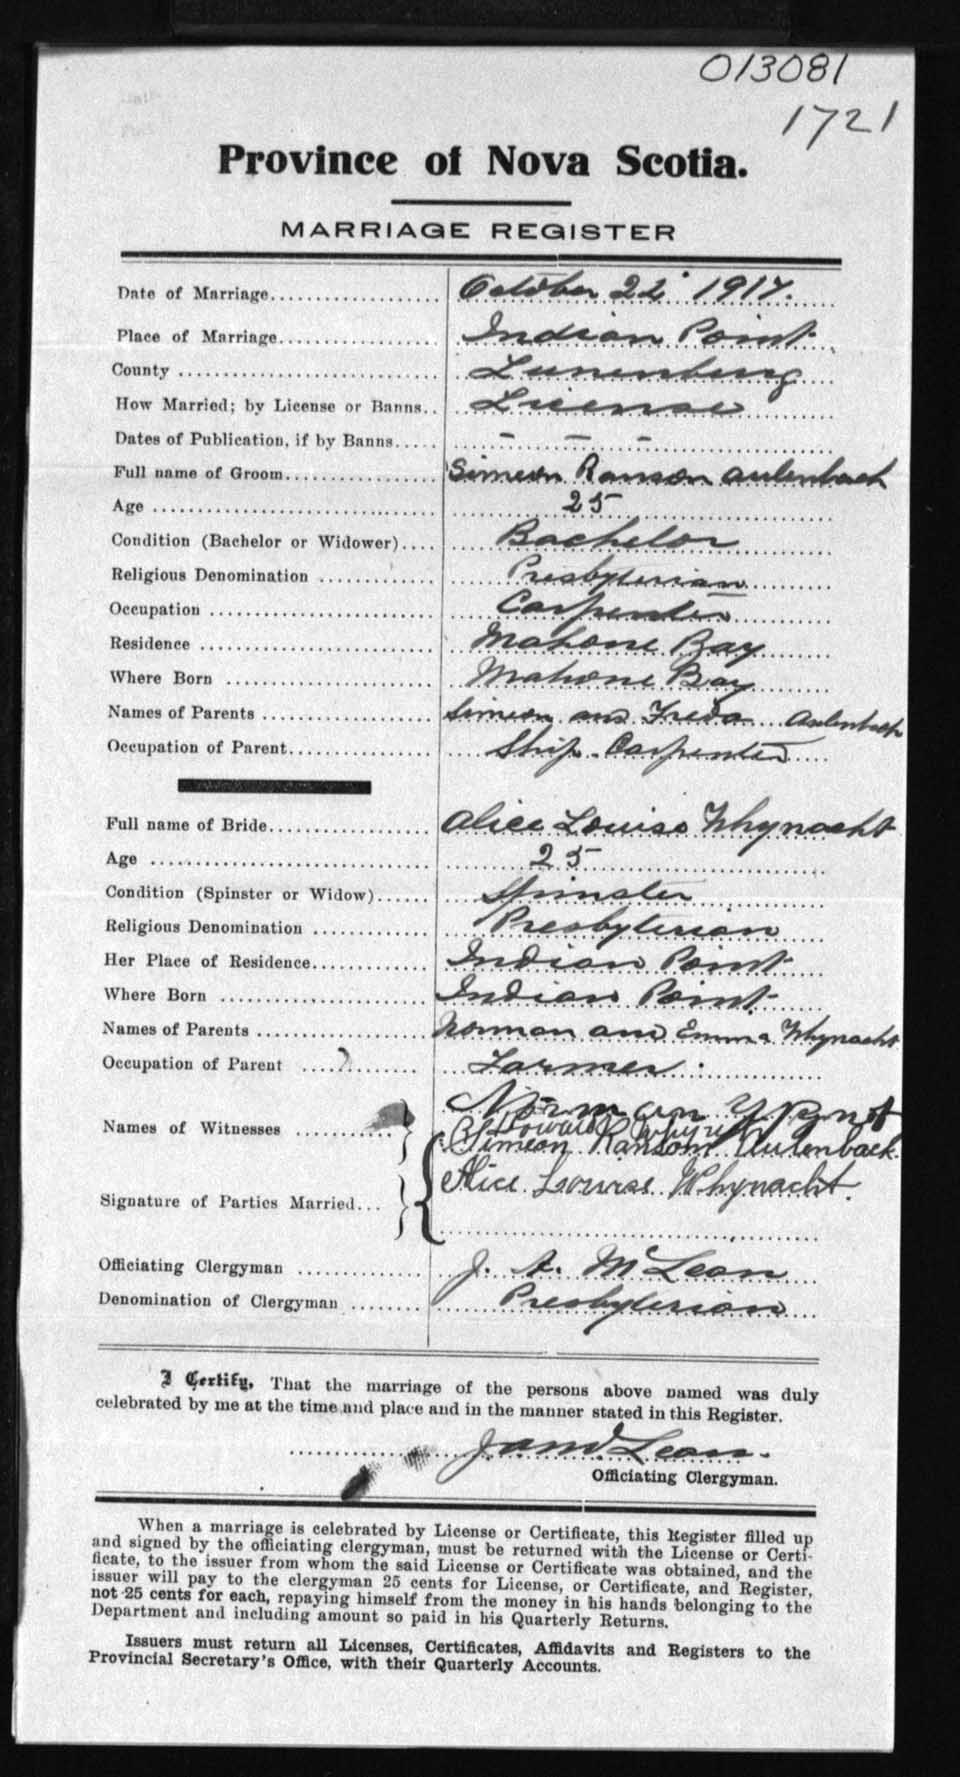 013081
1721
Province of Nova Scotia.
MARRIAGE REGISTER
Date of Marriage.................... October 22 1917.
Place of Marriage.................. Indian Point
County .............................. Lunenburg
How Married; by License or Banns.. License
Dates of Publication, if by Banns..... – – –
Full name of Groom.................. Simeon Ranson Aulenbach
Age .................................. 25
Condition (Bachelor or Widower).... Bachelor
Religious Denomination .............. Presbyterian
Occupation .......................... Carpenter
Residence ........................... Mahone Bay
Where Born ......................... Mahone Bay
Names of Parents .................... Simeon and Freda Aulenbach
Occupation of Parent................. Ship Carpenter
Full name of Bride................... Alice Louise Whynacht
Age .................................. 25
Condition (Spinster or Widow)...... Spinster
Religious Denomination .............. Presbyterian
Her Place of Residence.............. Indian Point
Where Born ......................... Indian Point
Names of Parents .................... Norman and Emma Whynacht
Occupation of Parent ...... Farmer
Norman
Names of Witnesses ............
Simeon Ransom Aulenbach.
Alice Louise Whynacht.
Signature of Parties Married...
Officiating Clergyman .............. J. A. McLean
Denomination of Clergyman ........ Presbyterian
I Certify, That the marriage of the persons above named was duly
celebrated by me at the time and place and in the manner stated in this Register.
J A McLean.
Officiating Clergyman.
When a marriage is celebrated by License or Certificate, this Register filled up
and signed by the officiating clergyman, must be returned with the License or Certi-
ficate, to the issuer from whom the said License or Certificate was obtained, and the
issuer will pay to the clergyman 25 cents for License, or Certificate, and Register,
not 25 cents for each, repaying himself from the money in his hands belonging to the
Department and including amount so paid in his Quarterly Returns.
Issuers must return all Licenses, Certificates, Affidavits and Registers to the
Provincial Secretary's Office, with their Quarterly Accounts.